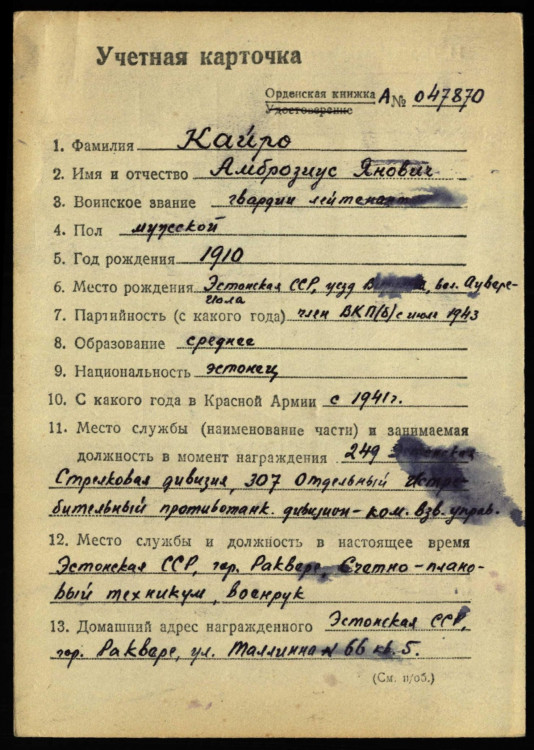 Учетная карточка
Орденская книжка А № 047870
Удостоверение
1. Фамилия Кайро
2. Имя и отчество Амброзиус Янович
3. Воинское звание гвардии лейтенант
4. Пол мужской
5. Год рождения 1910
6. Место рождения Эстонская ССР, уезд вол. Аувере-
гюла
7. Партийность (с какого года) член ВКП(б) с июля 1943
8. Образование среднее
9. Национальность эстонец
10. С какого года в Красной Армии с 1941 г.
11. Место службы (наименование части) и занимаемая
должность в момент награждения 249 Эстонская
Стрелковая дивизия, 307 Отдельный Истре-
бительный противотанк. дивизион - ком. взв. управ.
12. Место службы и должность в настоящее время
Эстонская ССР, гор. Раквере, Счетно-плано-
вый техникум, военрук
13. Домашний адрес награжденного Эстонская ССР,
гор. Раквере, ул. Таллинна № 66 кв. 5.
(См. н/об.)